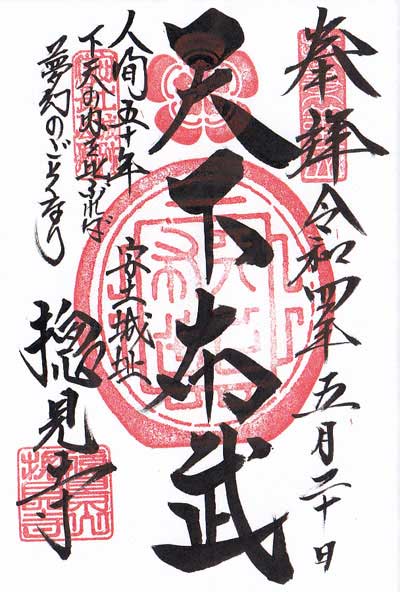 奉拝
令和四年五月二十日
天下布武
安土城址
人間五十年
下天の内をくらぶれば
夢幻のごとくなり
摠見寺